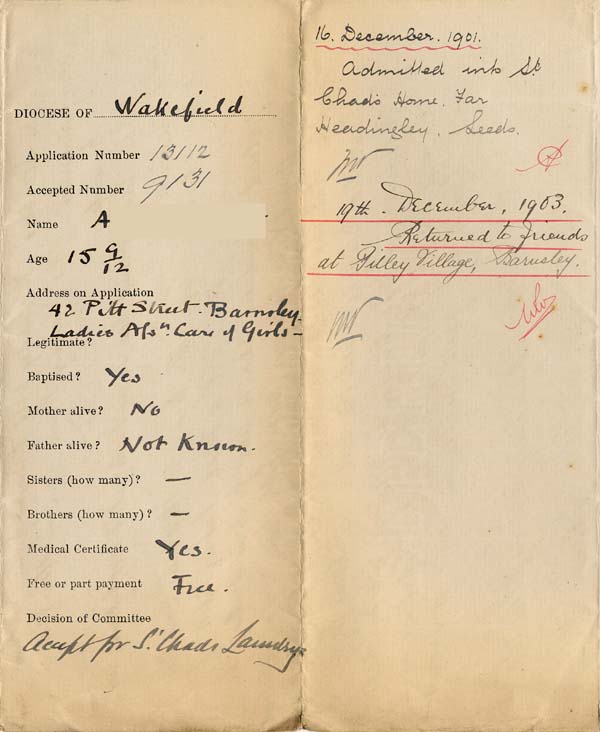 DIOCESE OF Wakefield
Application Number 13112
Accepted Number 9131
Name A
Age 15 9/12
Address on Application
42 Pitt Street - Barnsley
Ladies Assn. Care of Girls -
Legitimate?
Baptised? Yes
Mother alive? No
Father alive? Not Known.
Sisters (how many)? —
Brothers (how many)? —
Medical Certificate Yes.
Free or part payment Free.
Decision of Committee
Accept for St Chads Laundry
16. December. 1901.
Admitted into St
Chad's Home. Far
Headingley. Leeds.
19th. December, 1903.
Returned to friends
at Pilley Village, Barnsley.